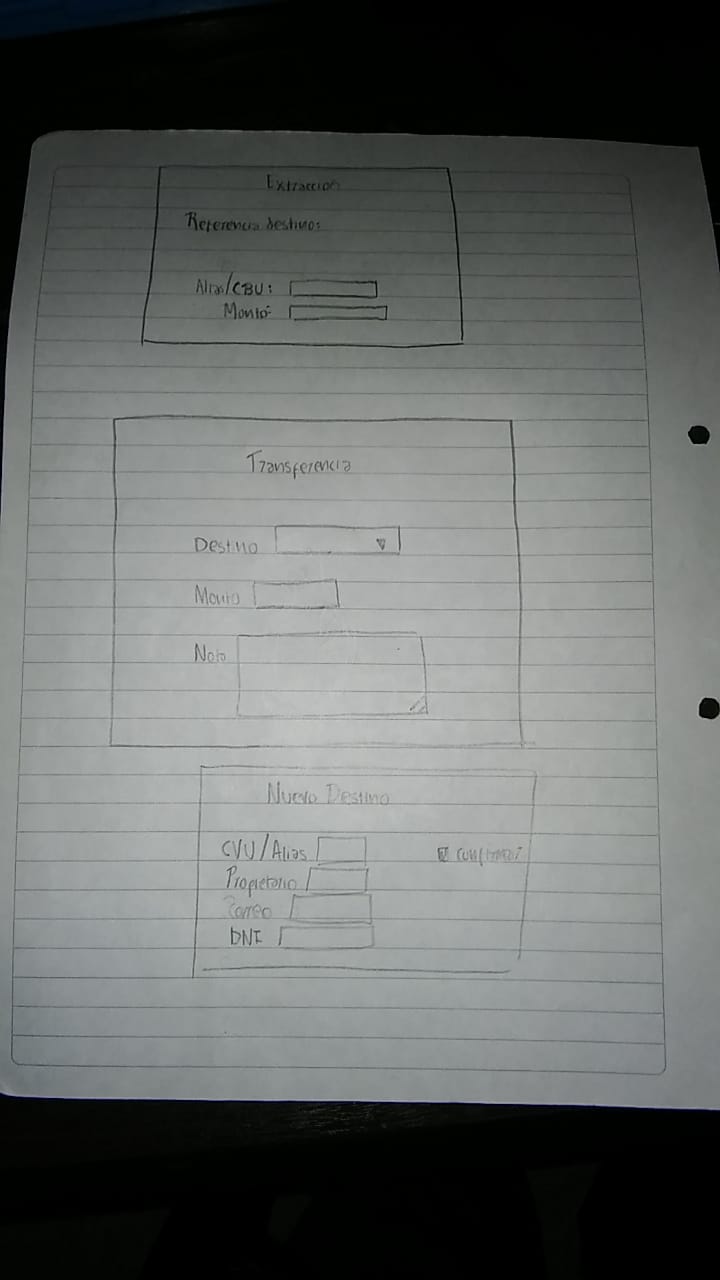 Extracción
Referencia destino:
Alias/CBU:
Monto:
Transferencia
Destino
Monto
Nota
Nuevo Destino
CVU/Alias
Propietario
Correo
DNI